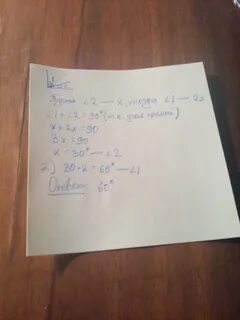 Пусть ∠2 — x, тогда ∠1 — 2x
∠1 + ∠2 = 90° (т.к. угол прямой)
x + 2x = 90
3x = 90
x = 30° — ∠2
2) 30 · 2 = 60° — ∠1
Ответ: 60°